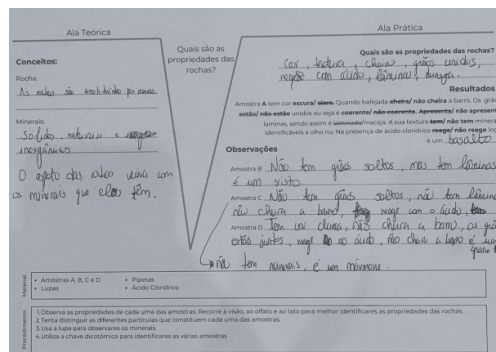 Ala Teórica
Ala Prática
Quais são as
propriedades das
rochas?
Conceitos:
Rocha:
As rochas são
Minerais:
Sólidos, naturais e
inorgânicos
O aspeto das rochas varia com
os minerais que elas têm.
Quais são as propriedades das rochas?
Cor, textura, cheiro, grãos unidos,
reação com ácido, lâminas, dureza.
Resultados
Amostra A tem cor escura/ clara. Quando bafejada cheira/ não cheira a barro. Os grãos
estão/ não estão unidos ou seja é coerente/ não coerente. Apresenta/ não apresenta
laminas, sendo assim é laminada/maciça. A sua textura tem/ não tem minerais
identificáveis a olho nu. Na presença de ácido clorídrico reage/ não reage log
é um basalto
Observações
Amostra B Não tem grãos soltos, mas tem lâminas
é um xisto
Amostra C Não tem grãos soltos, não tem lâminas
não cheira a barro, reage com o ácido,
Amostra D Tem cor clara, não cheira a barro, os grãos
estão juntos, reage ao ácido, não cheira a barro é um
granito
não tem minerais, é um mármore.
Material
• Amostras A, B, C e D
• Lupas
• Pipetas
• Ácido Clorídrico
Procedimento
1. Observa as propriedades de cada uma das amostras. Recorre à visão, ao olfato e ao tato para melhor identificares as propriedades das rochas.
2. Tenta distinguir as diferentes partículas que constituem cada uma das amostras.
3. Usa a lupa para observares os minerais.
4. Utiliza a chave dicotómica para identificares as várias amostras